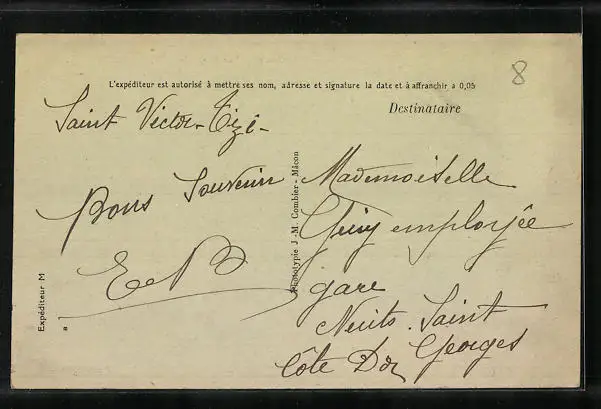 L'expéditeur est autorisé à mettre ses nom, adresse et signature la date et à affranchir a 0,05
8
Destinataire
Saint Victor-
Bons Souvenirs
E B
Expéditeur M
a
Phototypie J.-M. Combier - Mâcon
Mademoiselle
employée
gare
Nuits. Saint
Georges
Côte Dor